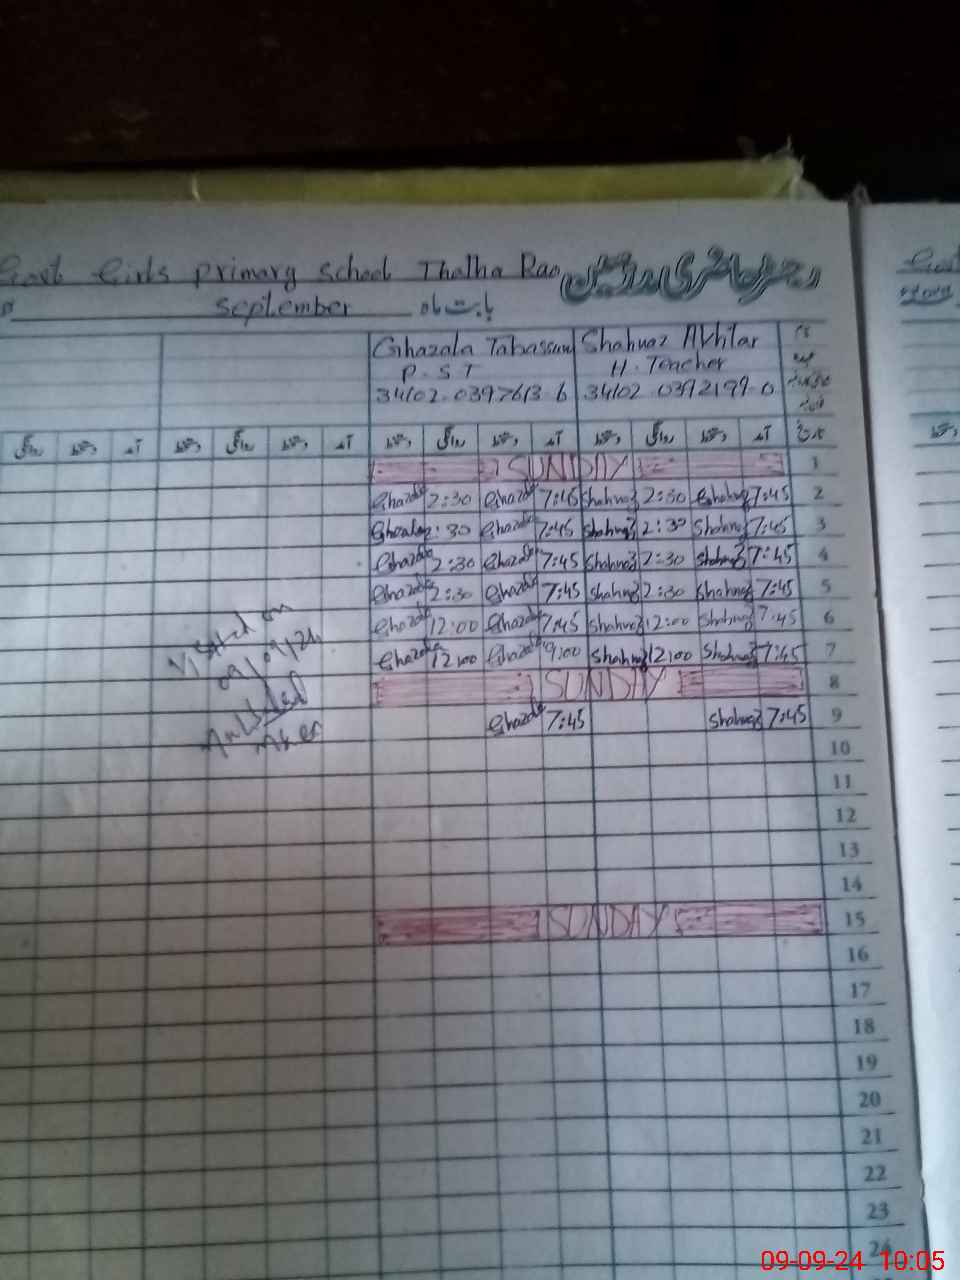 Govt Girls primary school Thalha Rao رجسٹر حاضری مدرسین
September بابت ماہ
Ghazala Tabassum Shahnaz Akhtar نام
P.S.T H.Teacher عہدہ
34102-0397613-6 34102-0392199-0
روانگی دستخط آمد دستخط روانگی دستخط آمد دستخط روانگی دستخط آمد دستخط روانگی دستخط آمد تاریخ
SUNDAY 1
Ghazala 2:30 Ghazala 7:45 Shahnaz 2:30 Shahnaz 7:45 2
Ghazala 2:30 Ghazala 7:45 Shahnaz 2:30 Shahnaz 7:45 3
Ghazala 2:30 Ghazala 7:45 Shahnaz 2:30 Shahnaz 7:45 4
Ghazala 2:30 Ghazala 7:45 Shahnaz 2:30 Shahnaz 7:45 5
Ghazala 12:00 Ghazala 7:45 Shahnaz 12:00 Shahnaz 7:45 6
Ghazala 12:00 Ghazala 9:00 Shahnaz 12:00 Shahnaz 7:45 7
SUNDAY 8
Ghazala 7:45 Shahnaz 7:45 9
Visited on
09/09/24
10
11
12
13
14
SUNDAY 15
16
17
18
19
20
21
22
23
24
09-09-24 10:05